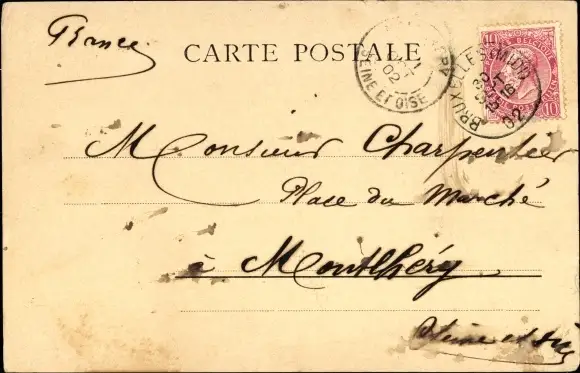 France
CARTE POSTALE
SEINE ET OISE
02
BRUXELLES (MIDI)
02
10 10
Monsieur Charpentier
Place du Marché
à Montlhéry
Seine et